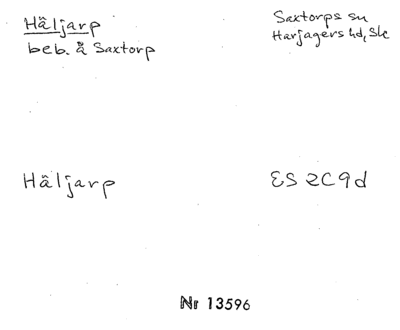 Häljarp
beb. å Saxtorp
Saxtorps sn
Harjagers hd, Sk
Häljarp
ES 2C9d
Nr 13596